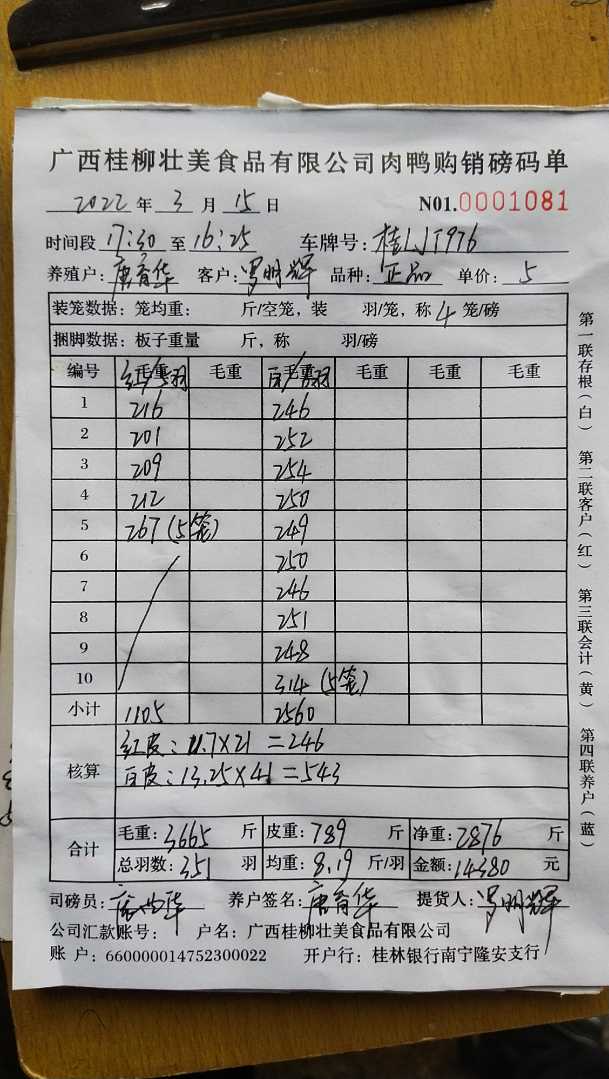 广西桂柳壮美食品有限公司肉鸭购销磅码单
2022 年 3 月 15 日 N01.0001081
时间段 17:30 至 16:25 车牌号: 桂LJT976
养殖户: 唐育华 客户: 罗明辉 品种: 正品 单价: 5
装笼数据: 笼均重: 斤/空笼, 装 羽/笼, 称 4 笼/磅
捆脚数据: 板子重量 斤, 称 羽/磅
编号 毛重 毛重 毛重 毛重 毛重 毛重
1 216 246
2 201 252
3 209 254
4 212 250
5 267 (5笼) 249
6 250
7 246
8 251
9 248
10 314 (5笼)
小计 1105 2560
核算 红皮: 11.7×21=246
白皮: 13.25×41=543
合计 毛重: 3665 斤 皮重: 789 斤 净重: 2876 斤
总羽数: 351 羽 均重: 8.19 斤/羽 金额: 14380 元
司磅员: 养户签名: 唐育华 提货人: 罗明辉
公司汇款账号: 户名: 广西桂柳壮美食品有限公司
账户: 660000014752300022 开户行: 桂林银行南宁隆安支行
第一联存根(白) 第二联客户(红) 第三联会计(黄) 第四联养户(蓝)